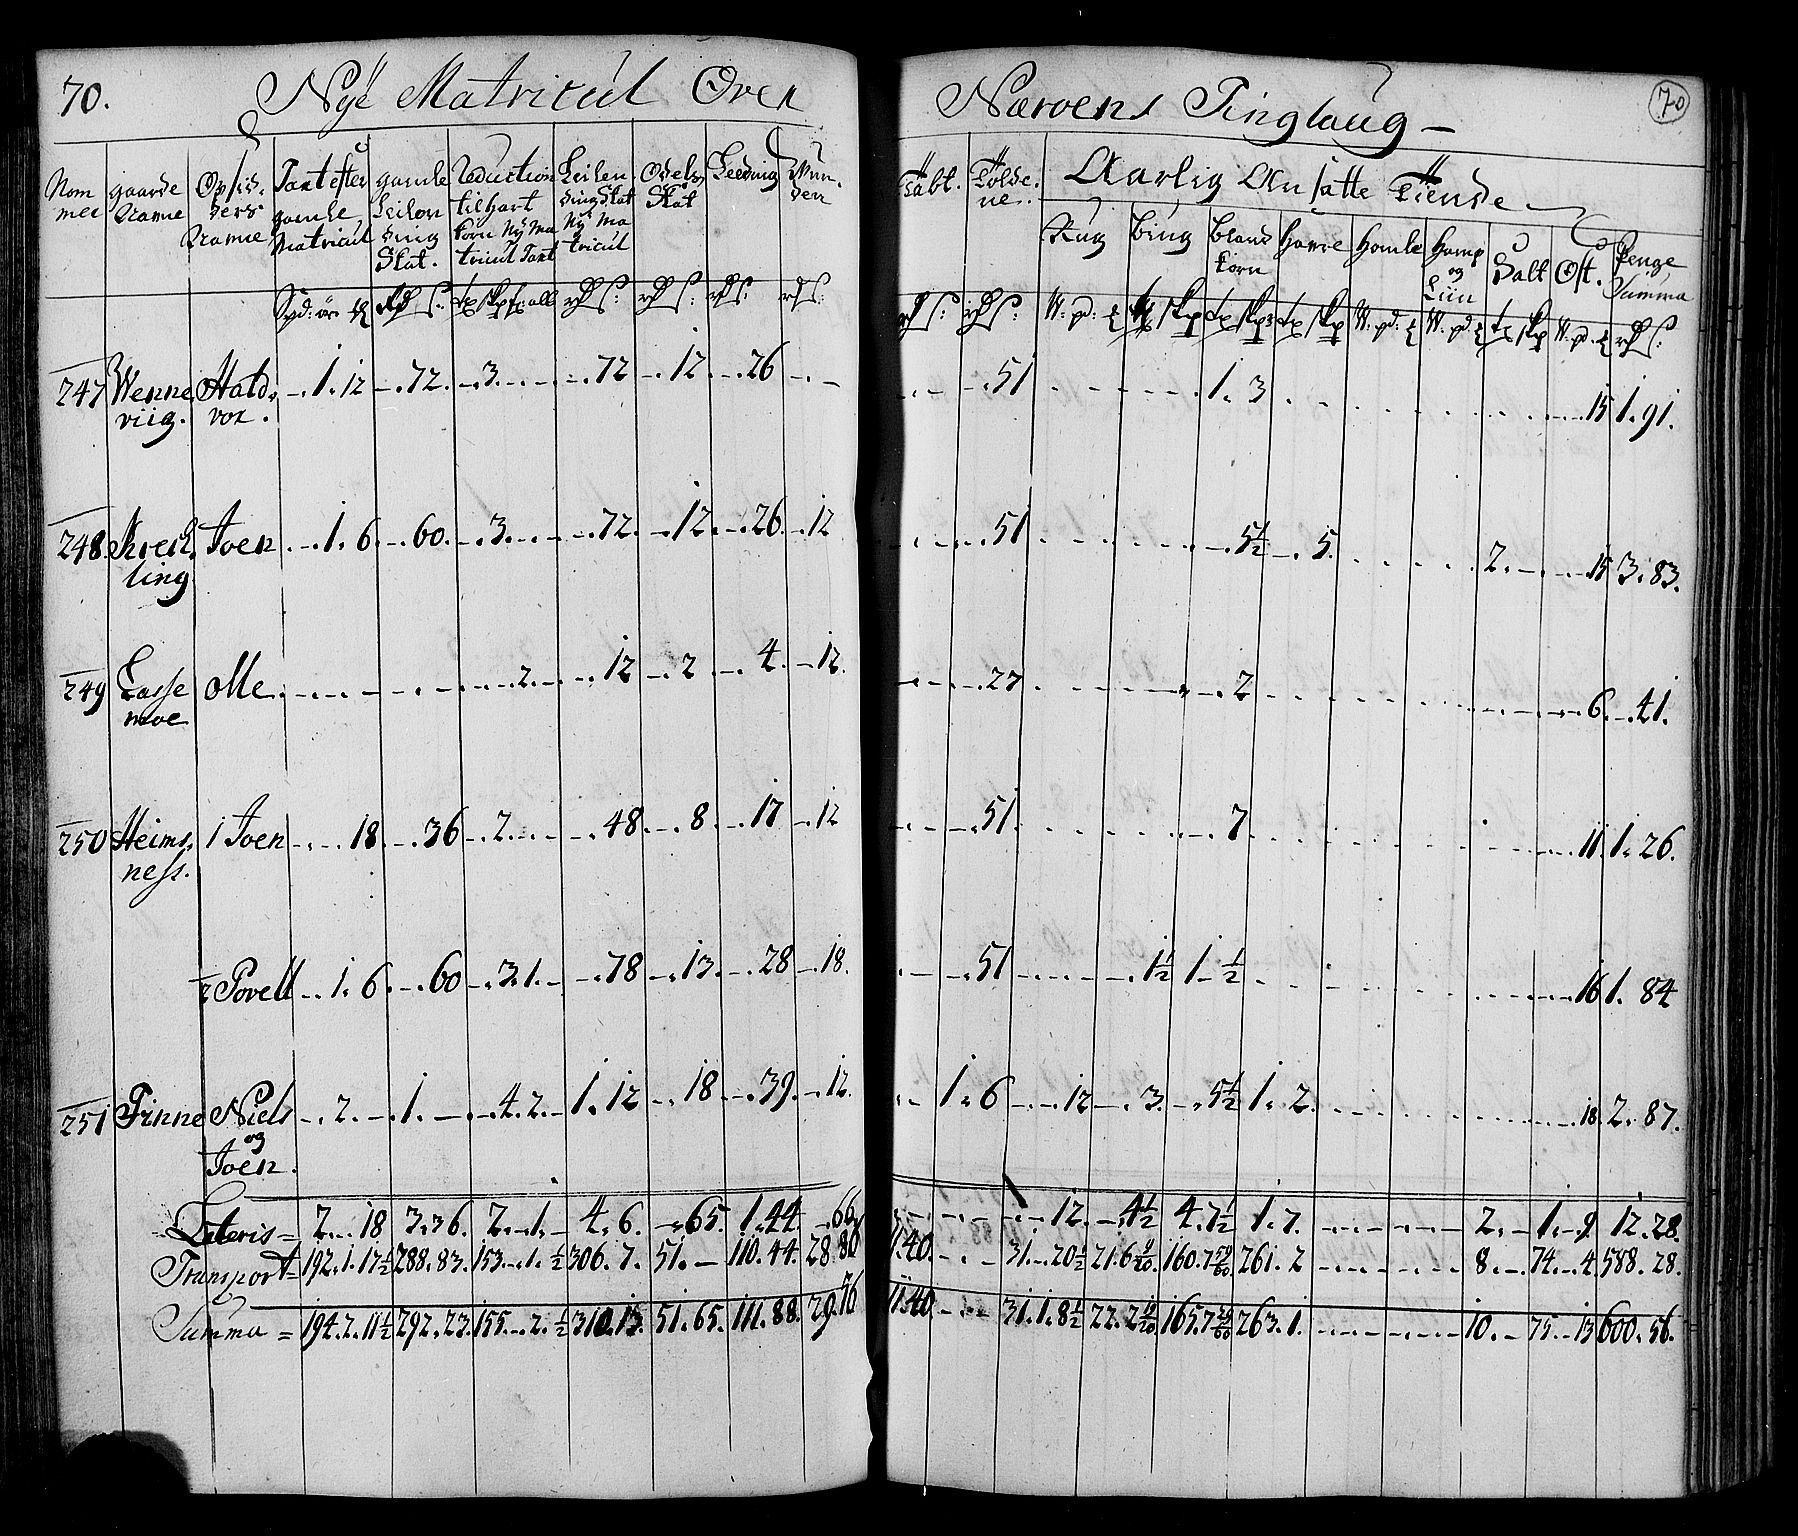 70. Nÿe Matricul Over Nærøens Tinglaug - 70
Nom mer | gaarde Navne | Opsid. ders Navne | Taxt efter gamle Matricul | gamle Leilen ding Skat. | Reduction til hart korn Nÿ Ma tricul Taxt | Leilen dings Skat Nÿ Ma tricul | Odels Skat | Leeding
Tolde. ne. | Aarlig Ansatte Tiende
Rug | Biug | Bland korn | Havre | Homle | Hamp og Liin | Salt | Ost. | Penge Summa
247 Wenne Hald. 1. 12 72. 3. 72 12 26 51 1. 3 15 1. 91.
viig. vor.
248. Joen 1. 6 60. 3. 72. 12. 26 12 51 5½ 5. 2. 15 3. 83.
ling
249 Lasse Ole 2. 12 2 4. 12. 27 2 6. 41.
moe
250 Heims. 1 Joen 18. 36 2. 48. 8. 17 12 51. 7. 11. 1. 26.
ness.
2 Povell 1. 6. 60 3. 1. 78 13. 28 18. 51 1½ 1. ½ 16 1. 84
251 Finne Niels 2. 1. 4. 2. 1. 12 18 39. 12. 1. 6 12 3. 5½ 1. 2. 18. 2. 87.
og
Joen.
Lateris = 2. 18 3. 36. 2. 1. 4. 6. 65. 1. 44. 66 12. 4½ 4. 7½ 1. 7. 2. 1. 9 12. 28.
Transport = 192. 1. 17½ 288. 83. 153. 1. ½ 306. 7. 51. 110. 44. 28. 80 11. 40. 31. 20½ 21. 6 160. 7 261. 2 8. 74. 4 588. 28.
Summa = 194. 2. 11½ 292. 23. 155. 2. ½ 310. 13. 51. 65. 111. 88. 29. 76 11. 40. 31. 1. 8½ 22. 2 165. 7 263. 1. 10. 75. 13 600. 56.